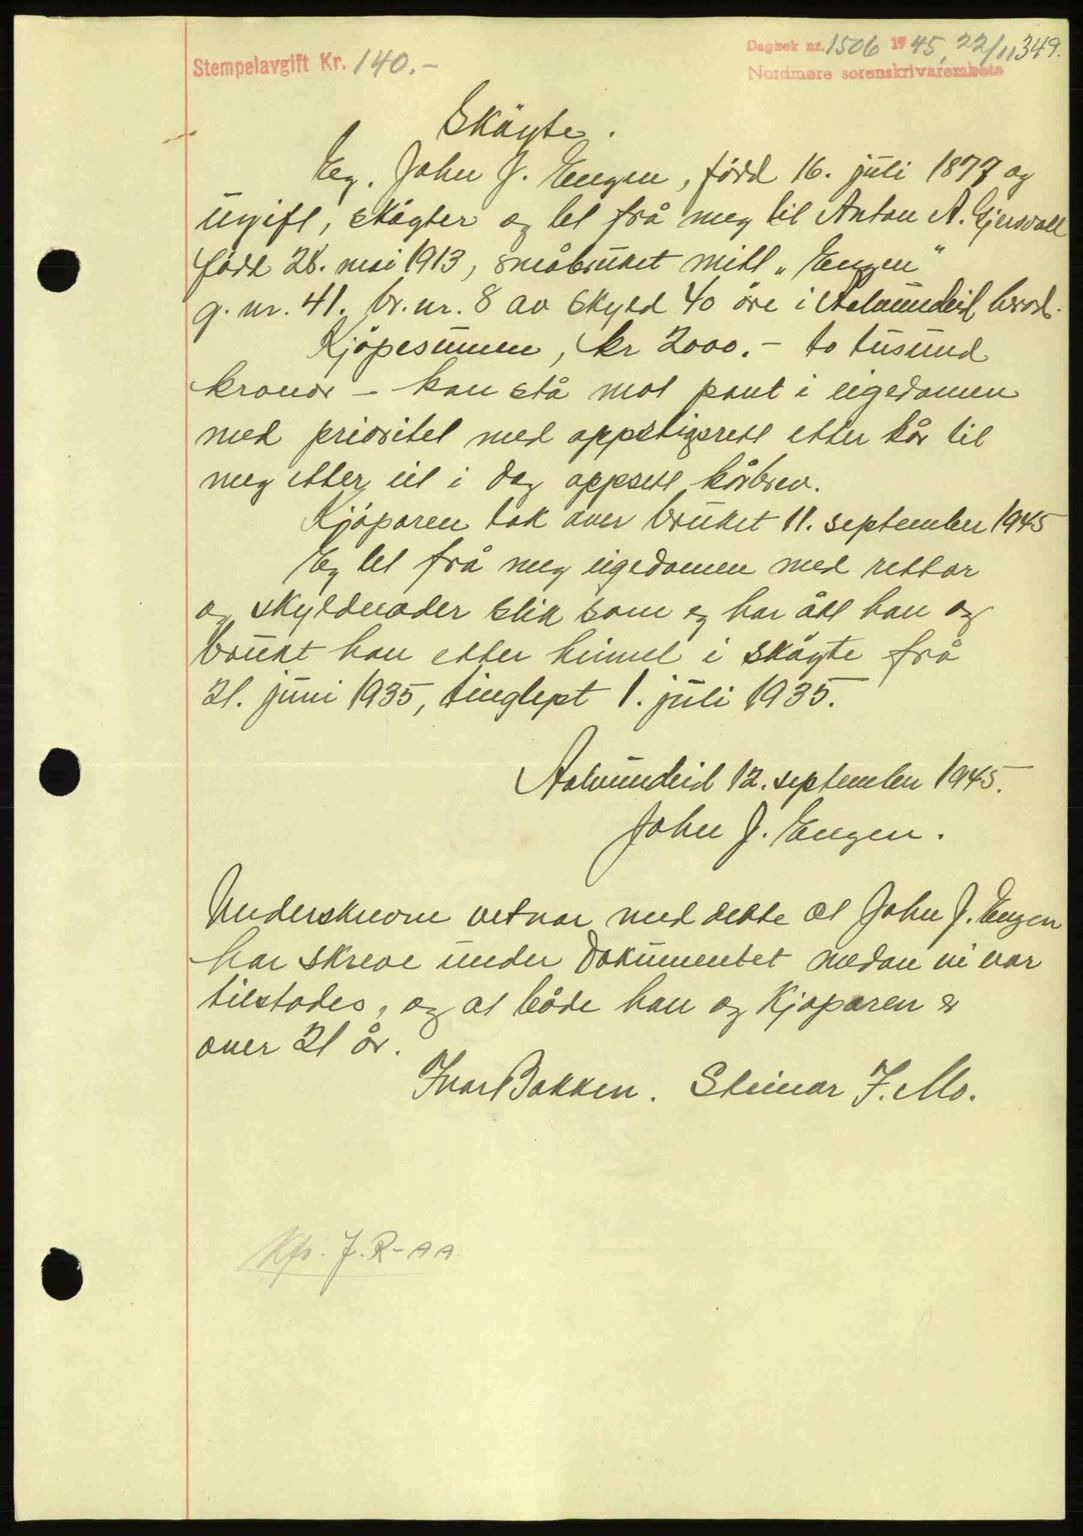 Stempelavgift Kr. 140.-
Dagbok nr. 1506 1945, 22/11 349.
Nordmøre sorenskrivarembete
Skøyte.
Eg. John J. Engen, född 16. juli 1877 og
ugift, skøyter og let frå meg til Anton A. Gjersvoll
född 28. mai 1913, småbruket mitt „Engen"
g. nr. 41. br. nr. 8 av skyld 40 öre i Aalvundeid herad.
Kjöpesummen, kr 2000.- to tusund
kronor - kan stå mot pant i eigedomen
med prioritet med oppstigsrett etter kår til
meg etter eit i dag oppsett kårbrev.
Kjöparen tok over bruket 11. september 1945
Eg let frå meg eigedomen med rettar
og skyldnader slik som eg har ått han og
brukt han etter heimel i skøyte frå
21. juni 1935, tinglept 1. juli 1935.
Aalvundeid 12. september 1945.
John J. Engen.
Underskrevne vetnar med dette at John J. Engen
har skreve under dokumentet medan vi var
tilstades, og at både han og kjöparen er
over 21 år.
Ivar Bakken. Steinar J. Mo.
Kfr. J. R-AA